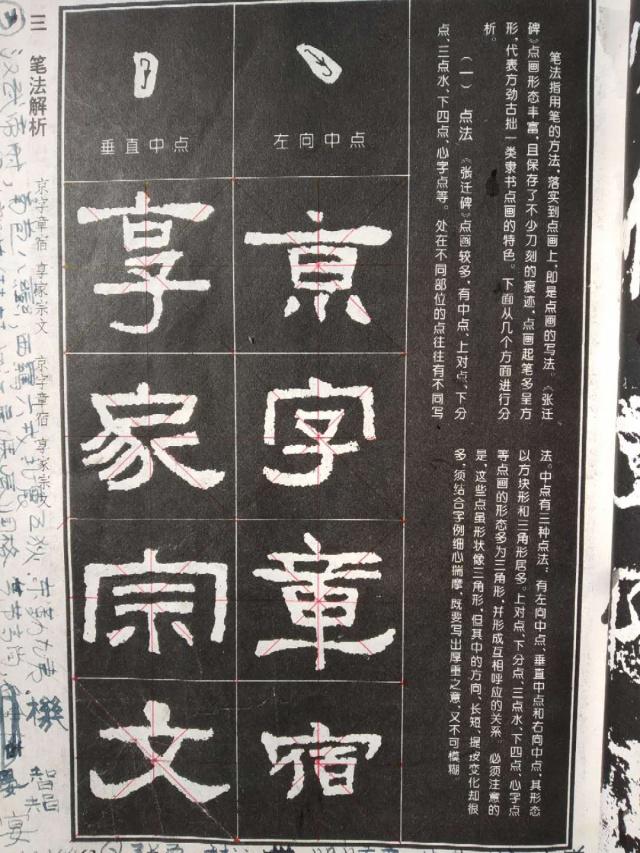 笔法指用笔的方法，落实到点画上，即是点画的写法。《张迁
碑》点画形态丰富，且保存了不少刀刻的痕迹，点画起笔多呈方
形，代表方劲古拙一类隶书点画的特色。下面从几个方面进行分
析。
（一） 点法 《张迁碑》点画较多，有中点、上对点、下分
点、三点水、下四点、心字点等。处在不同部位的点往往有不同写
法。中点有三种点法：有左向中点、垂直中点和右向中点，其形态
以方块形和三角形居多。上对点、下分点、三点水、下四点、心字点
等点画的形态多为三角形，并形成互相呼应的关系。必须注意的
是，这些点虽形状像三角形，但其中的方向、长短、提按变化却很
多，须结合字例细心揣摩，既要写出厚重之意，又不可模糊。
左向中点
京
字
章
宿
垂直中点
享
家
宗
文
三 笔法解析
京字章宿 享家宗文 京字章宿 享家宗文